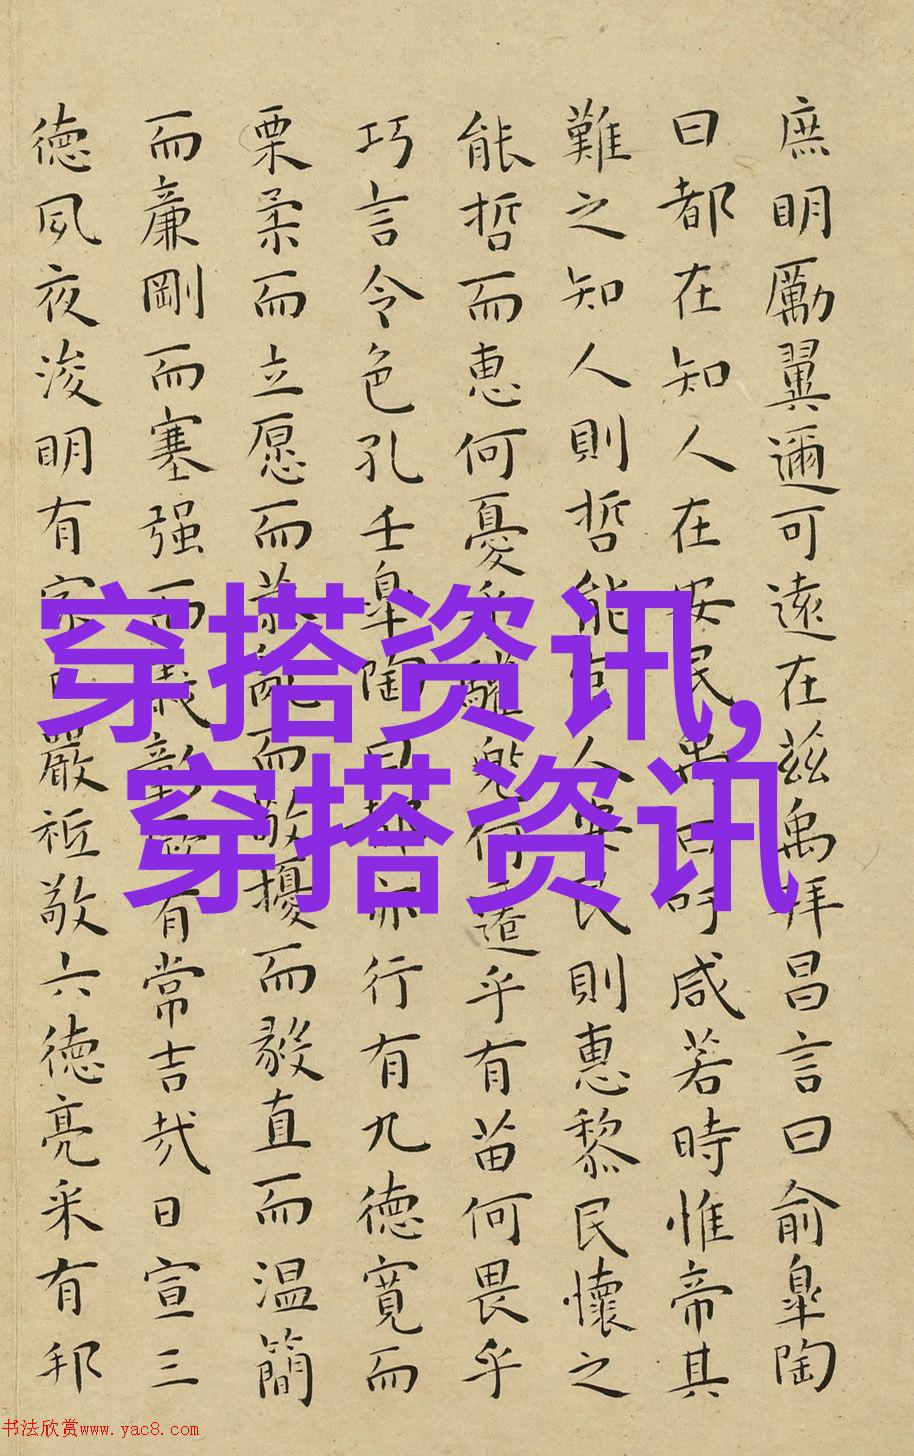 庶明勵翼邇可遠在茲禹拜昌言曰俞皐陶
曰都在知人在安民禹曰吁咸若時惟帝其
難之知人則哲能官人安民則惠黎民懷之
能哲而惠何憂乎驩兜何遷乎有苗何畏乎
巧言令色孔壬皐陶曰都亦行有九德寬而
栗柔而立愿而恭亂而敬擾而毅直而温簡
而廉剛而塞强而義彰厥有常吉哉日宣三
德夙夜浚明有家日嚴祗敬六德亮采有邦
穿搭资讯,
穿搭资讯
书法欣赏www.yac8.com